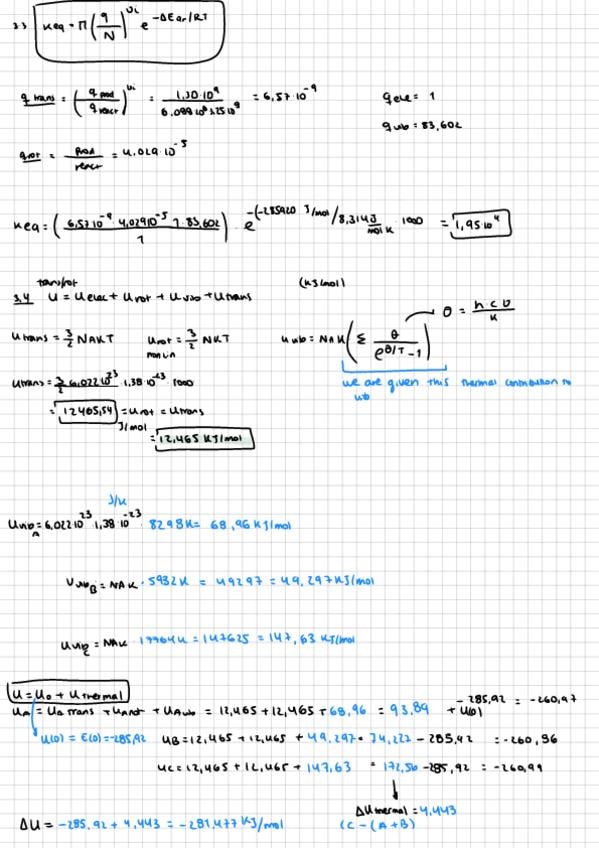 3.3 Keq = Π (q/N)^υi e^-ΔEar/RT
q trans = (q prod/q react)^υi = 1,30·10^9/6,088·10^8·3,25·10^8 = 6,57·10^-9
qele = 1
qvib = 83,602
qrot = prod/react = 4,029·10^-5
Keq = (6,57·10^-9 · 4,029·10^-5 · 1 · 83,602/1) · e^-(-285920 J/mol/8,314 J/mol K · 1000) = 1,95·10^4
trans/rot (KJ/mol)
3.4 U = Uelec + Urot + Uvib + Utrans
θ = h c υ/k
Utrans = 3/2 NAKT Urot = 3/2 NKT Uvib = NAK (Σ θ/e^θ/T -1)
non lin
we are given this thermal contribution to
vib
Utrans = 3/2 6,022·10^23 · 1,38·10^-23 · 1000
= 12465,54 = Urot = Utrans
J/mol
= 12,465 KJ/mol
J/K
Uvib A = 6,022·10^23 · 1,38·10^-23 · 8298K = 68,96 KJ/mol
Uvib B = NAK · 5932K = 49297 = 49,297 KJ/mol
Uvib C = NAK · 17764K = 147625 = 147,63 KJ/mol
U = U0 + Uthermal
UA = UA trans + UArot + UAvib = 12,465 + 12,465 + 68,96 = 93,89 + U(0) -285,92 = -260,97
U(0) = E(0) = -285,92 UB = 12,465 + 12,465 + 49,297 = 74,222 - 285,92 = -260,96
UC = 12,465 + 12,465 + 147,63 = 172,56 - 285,92 = -260,99
ΔUthermal = 4,443
ΔU = -285,92 + 4,443 = -281,477 KJ/mol (C - (A+B)